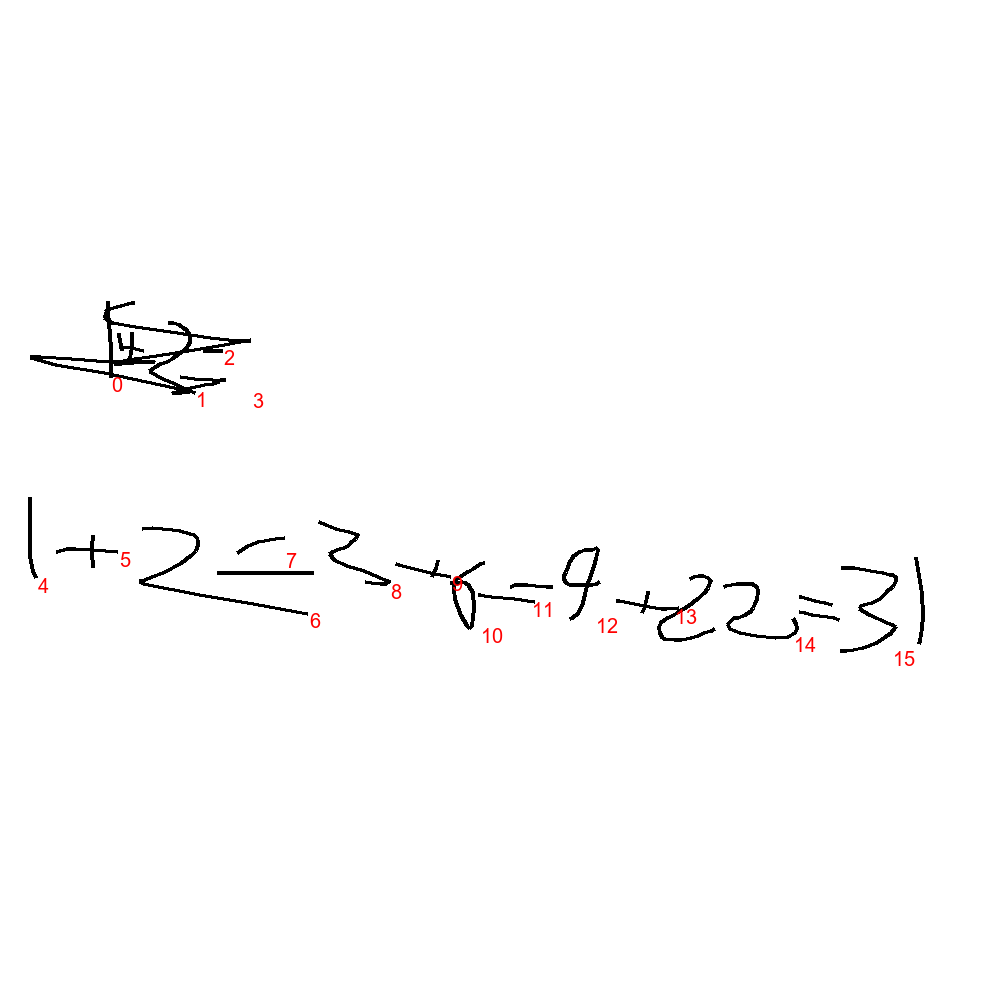 2
0 1 3
1+2=3+6=9+22=31
5 7
4 6 8 9
10 11 12 13
14 15